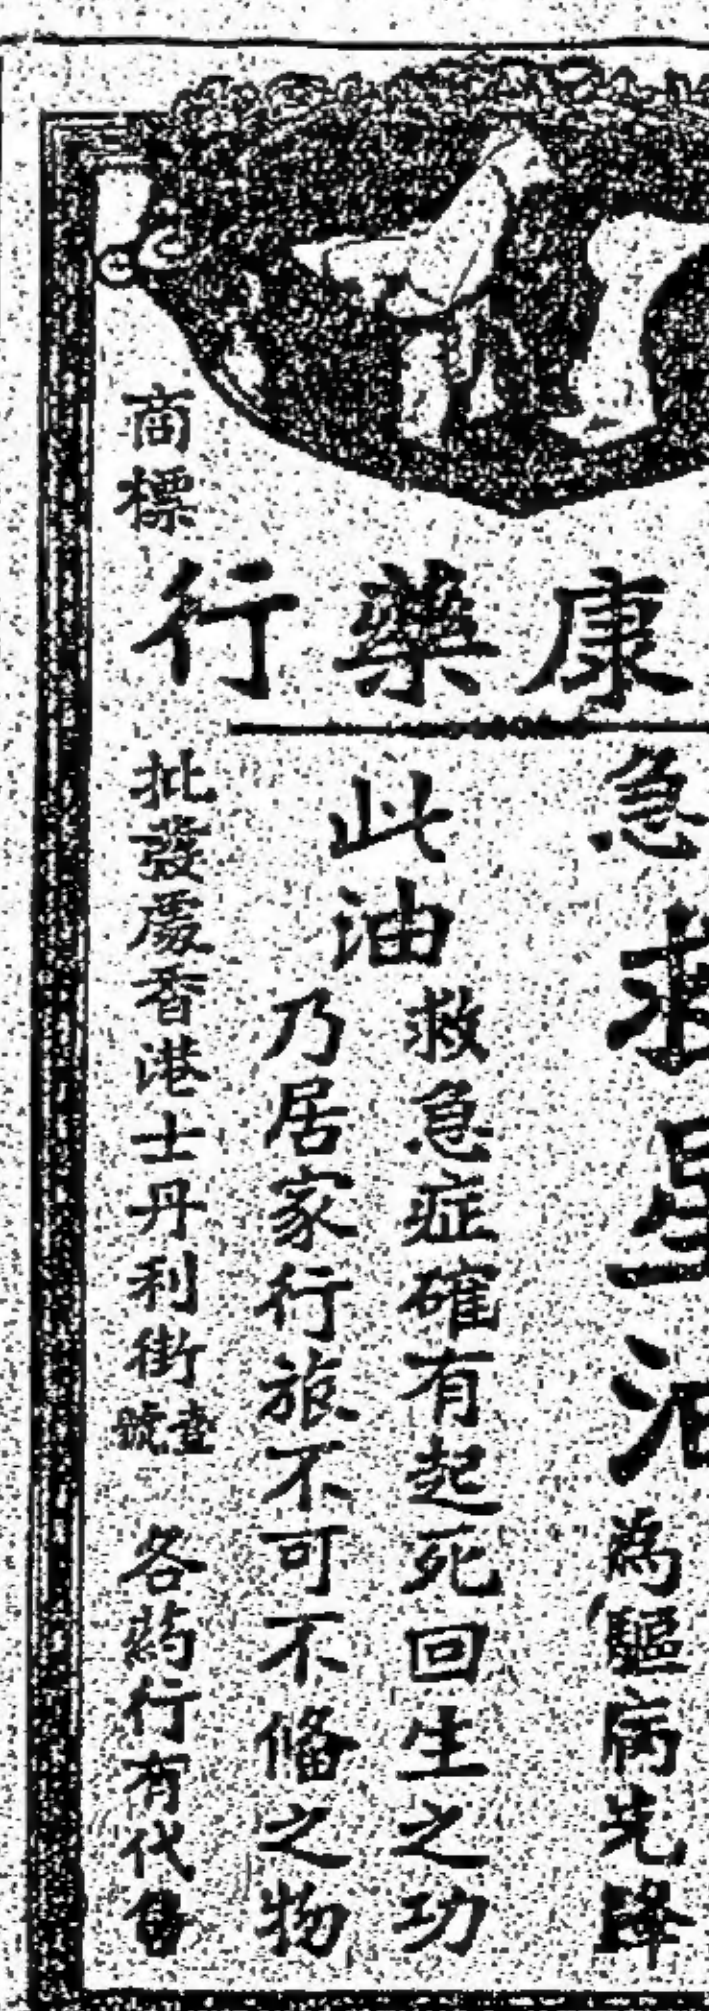 商標
康藥行
急救星油為驅病先鋒
此油
救急症確有起死回生之功
乃居家行旅不可不俻之物
批發處香港士丹利街壹號 各葯行有代售